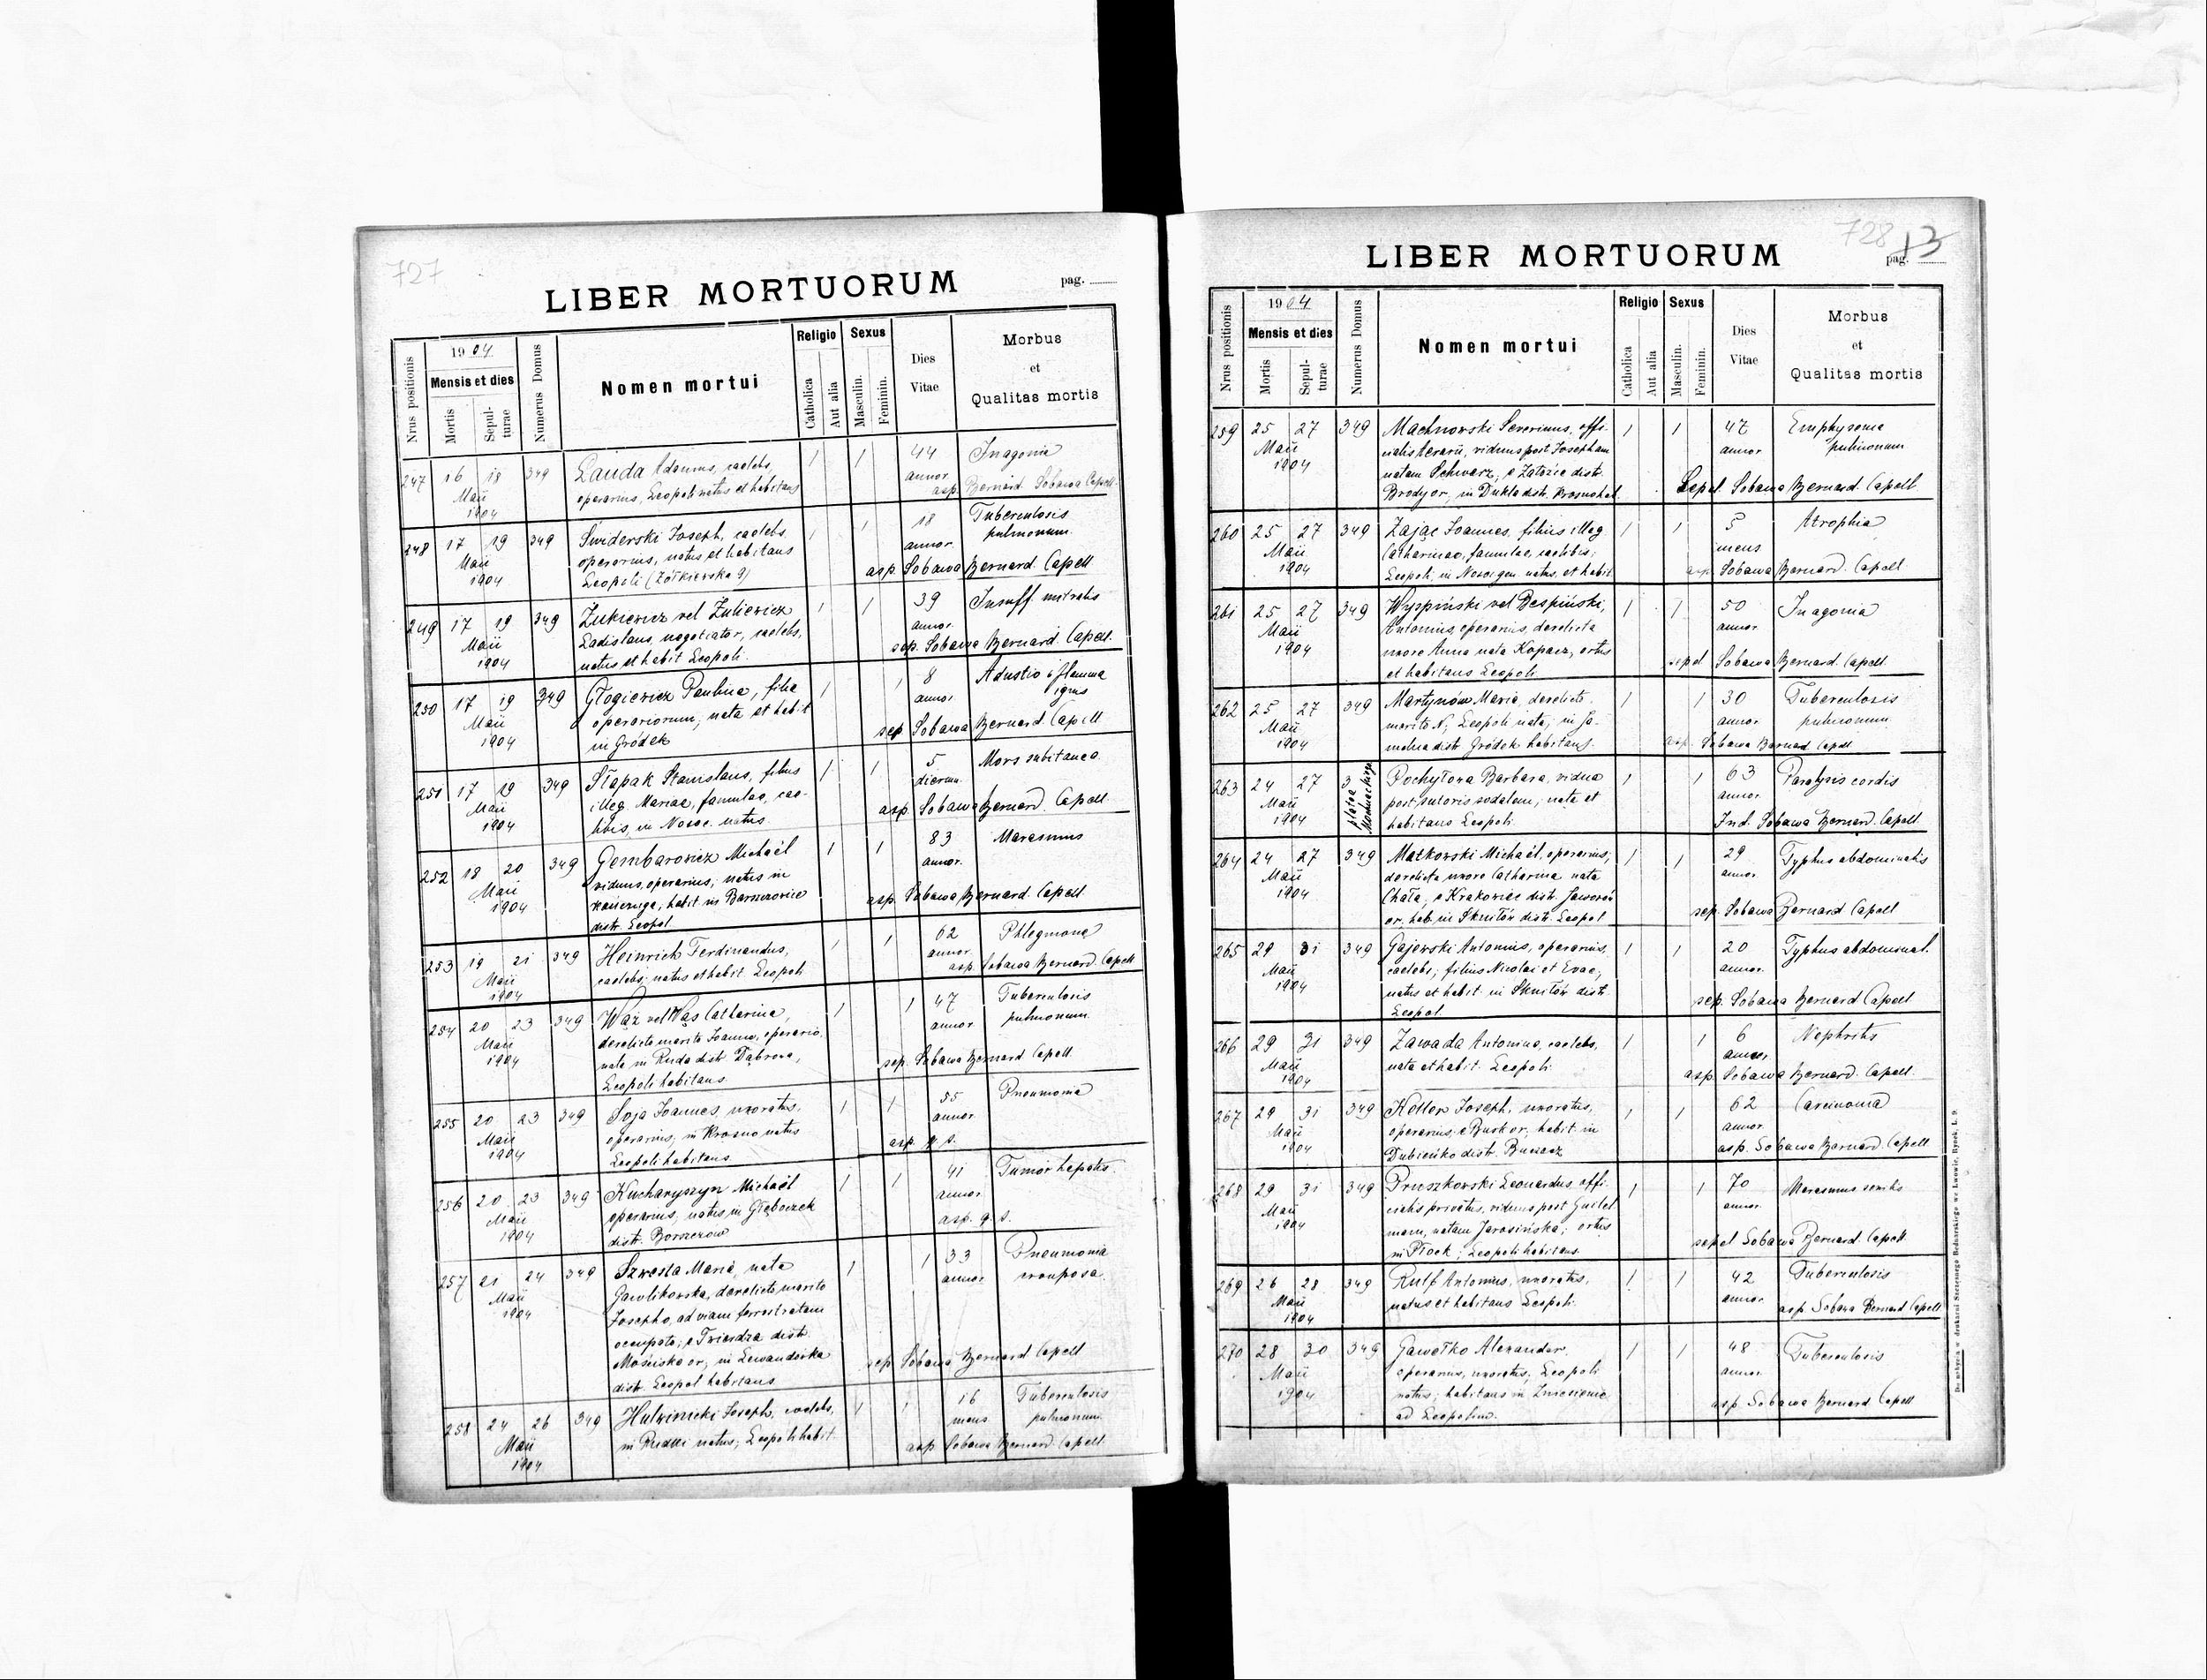 727
LIBER MORTUORUM
pag.
Nrus positionis
1904
Mensis et dies
Mortis
Sepul-
turae
Numerus Domus
Nomen mortui
Religio
Catholica
Aut alia
Sexus
Masculin.
Feminin.
Dies
Vitae
Morbus
et
Qualitas mortis
247 16 18 349 Lauda Adamus, caelebs, 1 1 44 In agonia
Maii operarius, Leopoli natus et habitans annor.
1904 asp. Bernard. Sobawa Capell.
248 17 19 349 Świderski Joseph, caelebs 1 1 18 Tuberculosis
Maii operarius, natus et habitans annor. pulmonum.
1904 Leopoli (Żółkiewska 9) asp. Sobawa Bernard. Capell
249 17 19 349 Żukiewicz vel Żuliewicz 1 1 39 Insuff. mitralis
Maii Ladislaus, negotiator, caelebs, annor.
1904 natus et habit Leopoli. sep. Sobawa Bernard. Capell.
250 17 19 349 Głogiewicz Paulina, filia 1 1 8 Adustio e flamma
Maii operariorum, nata et habit annor. ignis
1904 in Gródek sep Sobawa Bernard Capell
251 17 19 349 Słapak Stanislaus, filius 1 1 5 Mors subitanea
Maii illeg. Mariae, famulae, cae- dierum.
1904 libis, in Nosoc. natus. asp. Sobawa Bernard. Capell.
252 18 20 349 Gembarowicz Michaël 1 1 83 Marasmus
Maii viduus, operarius, natus in annor.
1904 Kańczuga, habit in Barszczowice asp. Sobawa Bernard. Capell
distr. Leopol.
253 19 21 349 Heinrich Ferdinandus, 1 1 62 Phlegmona
Maii caelebs; natus et habit Leopoli annor.
1904 asp. Sobawa Bernard. Capell
254 20 23 349 Wąż vel Wąs Catharina, 1 1 47 Tuberculosis
Maii derelicta marito Joanne, operario annor pulmonum.
1904 nata in Ruda distr Dąbrowa, sep. Sobawa Bernard Capell.
Leopoli habitans.
255 20 23 349 Soja Joannes, uxoratus, 1 1 55 Pneumonia
Maii operarius, in Krosno natus annor.
1904 Leopoli habitans. asp. q. s.
256 20 23 349 Kucharyszyn Michaël 1 1 41 Tumor hepatis.
Maii operarius, natus in Głęboczek annor.
1904 distr. Borszczow asp. q. s.
257 21 24 349 Szwesta Maria, nata 1 1 33 Pneumonia
Maii Gawlikowska, derelicta marito annor crouposa.
1904 Josepho, ad viam ferrestratam
occupato; e Twierdza distr.
Mościska or, in Lewandówka sep. Sobawa Bernard Capell
distr. Leopol habitans
258 24 26 349 Hulwinicki Joseph, caelebs, 1 1 16 Tuberculosis
Maii in Rudki natus; Leopoli habit. mens pulmonum.
1904 asp Sobawa Bernard. Capell
728 13
LIBER MORTUORUM
pag.
Nrus positionis
1904
Mensis et dies
Mortis
Sepul-
turae
Numerus Domus
Nomen mortui
Religio
Catholica
Aut alia
Sexus
Masculin.
Feminin.
Dies
Vitae
Morbus
et
Qualitas mortis
259 25 27 349 Machnowski Severinus, offi- 1 1 47 Emphysema
Maii cialis aerarii, viduus post Josepham annor pulmonum
1904 natam Schwarz, e Załoźce distr.
Brody or, in Dukla distr. Krosno hab. Sepel. Sobawa Bernard. Capell
260 25 27 349 Zając Joannes, filius illeg 1 1 5 Atrophia
Maii Catharinae, famulae, caelibis; mens
1904 Leopoli, in Nosoc. gen. natus, et habit asp. Sobawa Bernard. Capell.
261 25 27 349 Wyspiński vel Despiński, 1 1 50 In agonia
Maii Antonius, operarius, derelicta annor.
1904 uxore Anna nata Kopacz, ortus sepel Sobawa Bernard. Capell.
et habitans Leopoli
262 25 27 349 Martynów Maria, derelicta 1 1 30 Tuberculosis
Maii marito N; Leopoli nata; in Ja- annor. pulmonum
1904 melna distr Gródek habitans. asp. Sobawa Bernard Capell
263 24 27 3 platea Mochnackiego Pochyłova Barbara, vidua 1 1 63 Paralysis cordis
Maii post sutoris sodalem; nata et annor.
1904 habitans Leopoli. Ind. Sobawa Bernard. Capell.
264 24 27 349 Matkowski Michaël, operarius, 1 1 29 Typhus abdominalis
Maii derelicta uxore Catharina nata annor.
1904 Chała, e Krakowiec distr. Jaworów
or. hab. in Skniłów distr. Leopol sep. Sobawa Bernard Capell
265 29 31 349 Gajewski Antonius, operarius, 1 1 20 Typhus abdominal.
Maii caelebs; filius Nicolai et Evae; annor.
1904 natus et habit. in Skniłów distr. sep. Sobawa Bernard Capell
Leopol.
266 29 31 349 Zawada Antonina, caelebs, 1 1 6 Nephritis
Maii nata et habit. Leopoli. annor,
1904 asp. Sobawa Bernard. Capell.
267 29 31 349 Keller Joseph, uxoratus, 1 1 62 Carcinoma
Maii operarius, e Busk or, habit in annor.
1904 Dubieńko distr. Buczacz asp. Sobawa Bernard. Capell.
268 29 31 349 Pruszkowski Leonardus, offi- 1 1 70 Marasmus senilis
Maii cialis privatus, viduus post Guilel annor.
1904 mam, natam Jarosińska; ortus
in Płock; Leopoli habitans. sepel Sobawa Bernard. Capell.
269 26 28 349 Rulf Antonius, uxoratus, 1 1 42 Tuberculosis
Maii natus et habitans Leopoli. annor.
1904 asp Sobawa Bernard Capell
270 28 30 349 Gawełko Alexander, 1 1 48 Tuberculosis
Maii operarius, uxoratus, Leopoli annor.
1904 natus; habitans in Zniesienie asp. Sobawa Bernard Capell
ad Leopolim.
Do nabycia w drukarni Szczęsnego Bednarskiego we Lwowie, Rynek, L. 9.